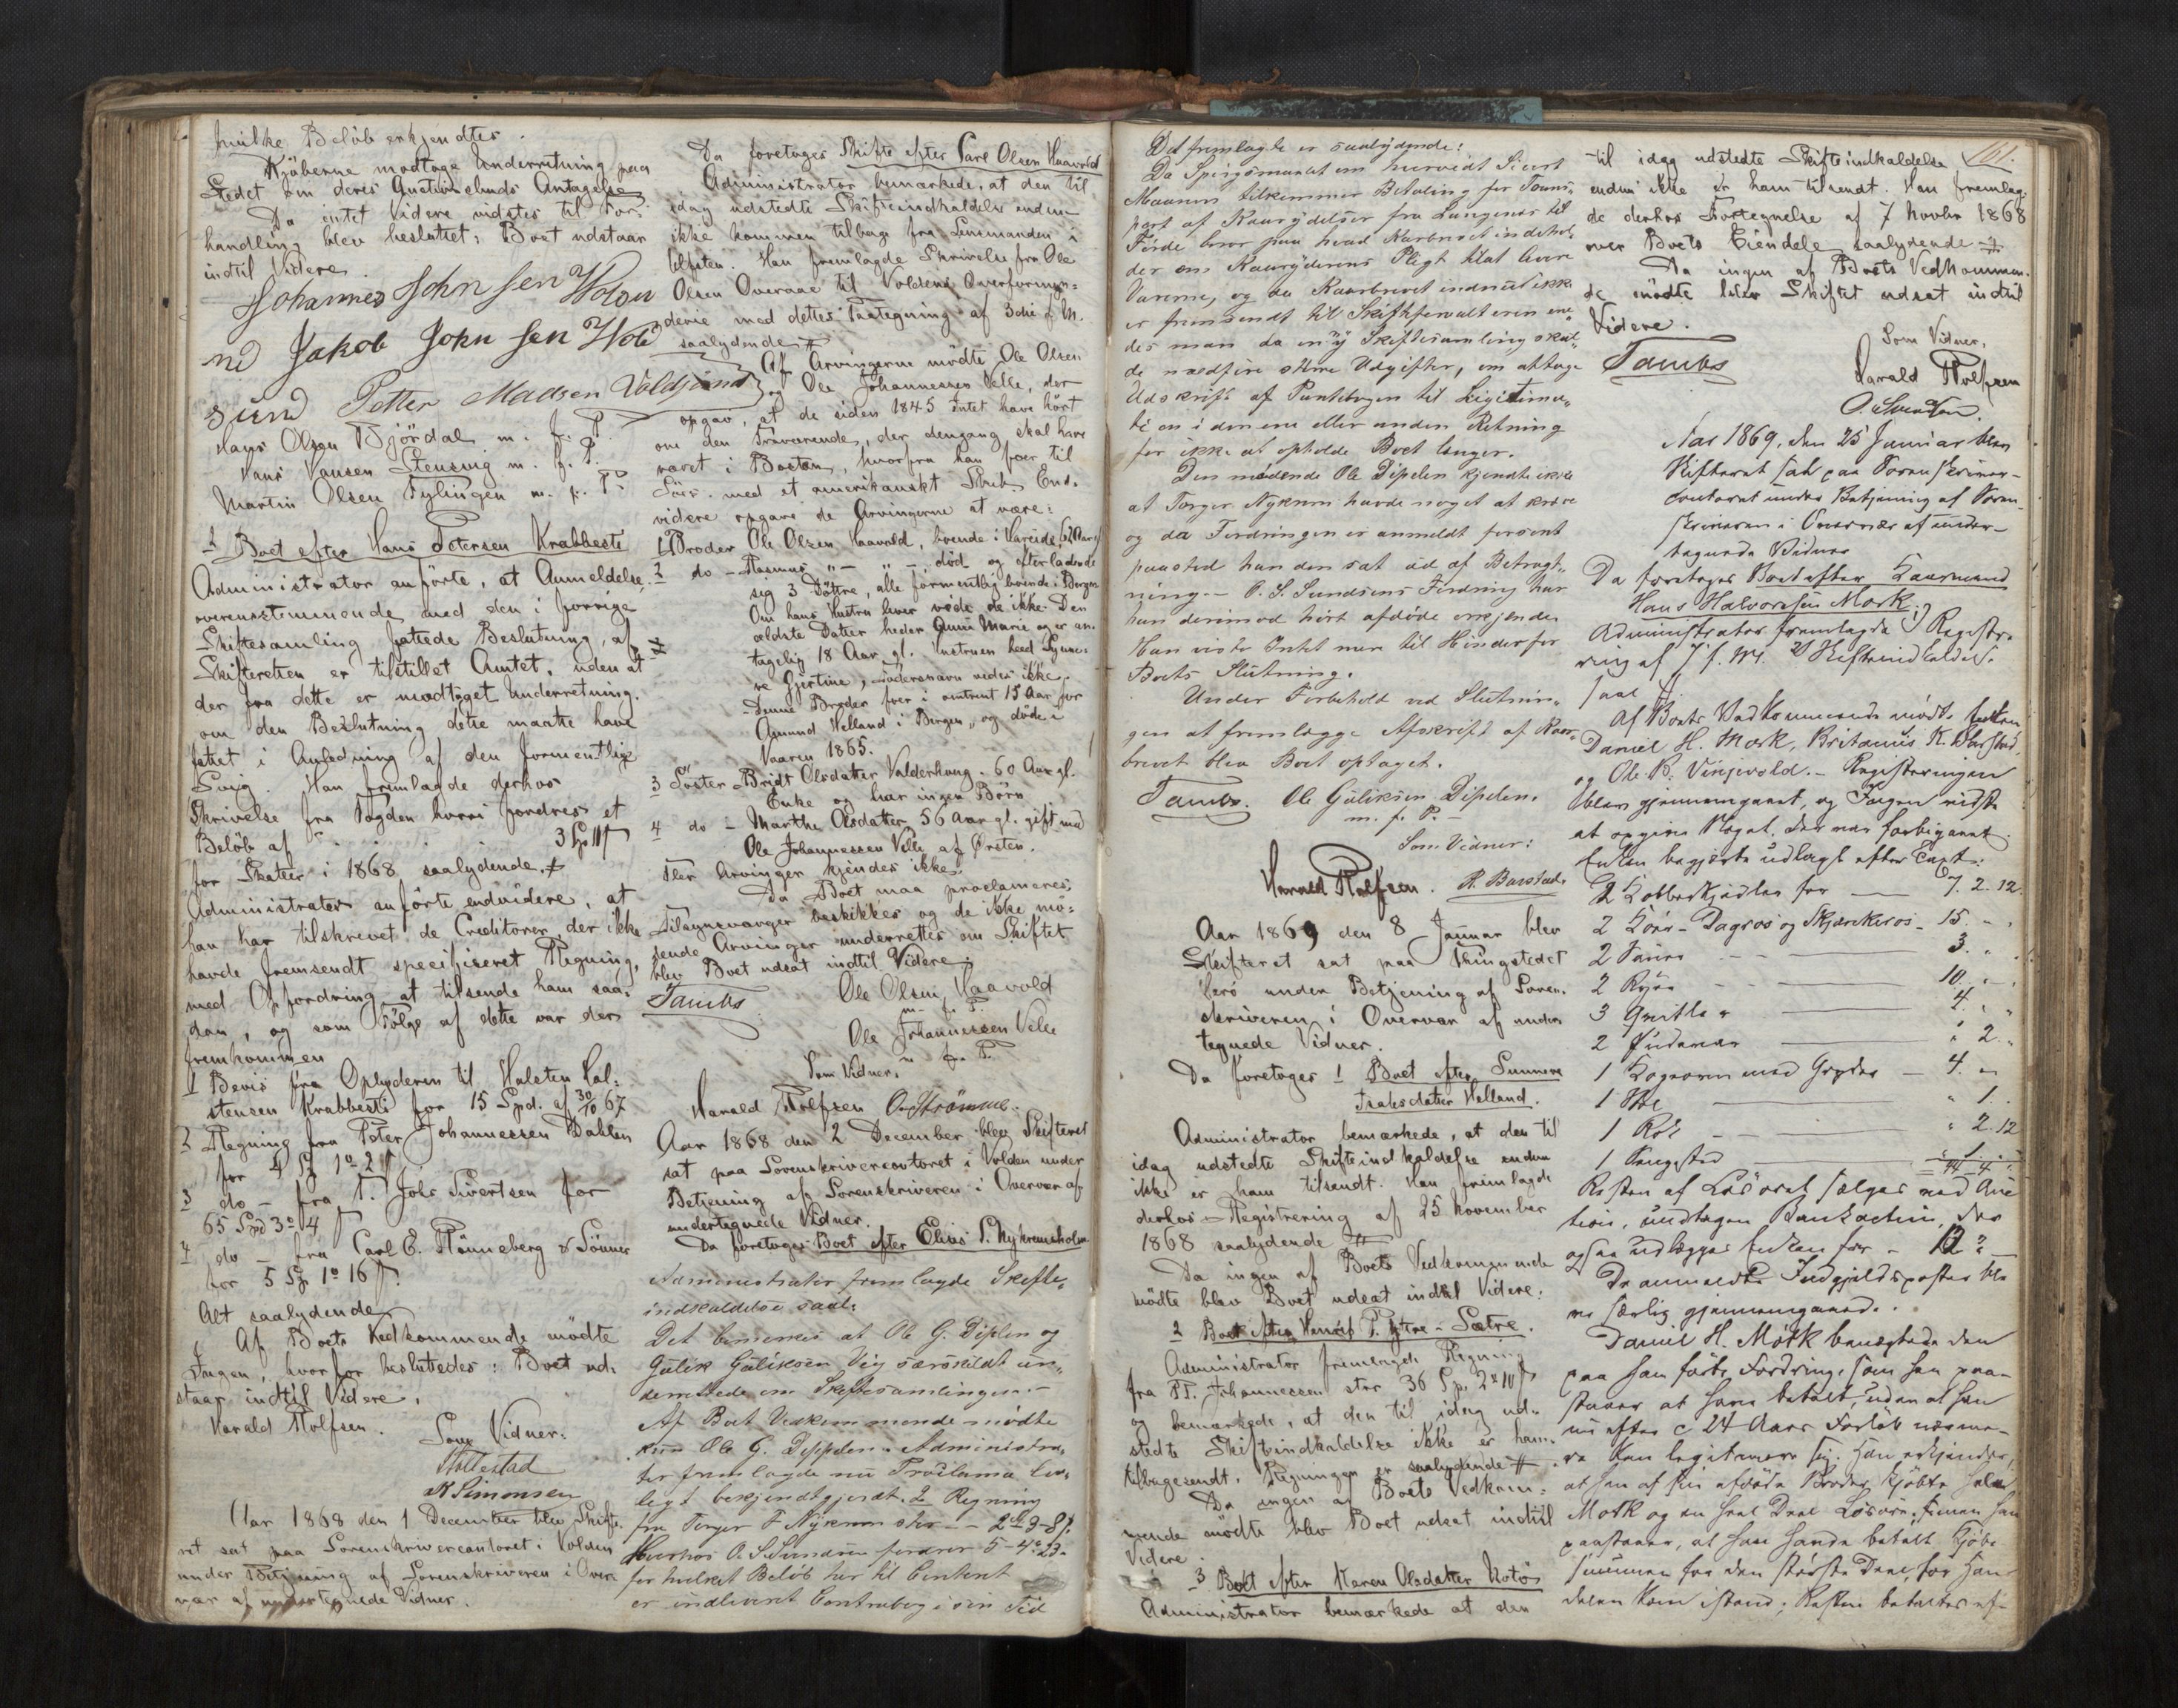 hvilke Beløb erkjendtes.
Kjøberne modtage Underretning paa
Stedet om deres Auctionsbuds Antagelse
Da intet Videre vidstes til For-
handling blev besluttet: Boet udstaar
indtil Videre.
Johannes Johnsen Wolsu
nd Jakob Johnsen Wols
sund Petter Madsen Voldsund
Hans Olsen Bjørdal m. f. P.
Hans Hansen Stensvig m. f. P.
Martin Olsen Fylingen m. f. P.
1 Boet efter Hans Petersen Krabbestè
Administrator anførte, at Anmeldelse,
overensstemmende med den i forrige
Skiftesamling fattede Beslutning, af
Skifteretten er tilstillet Amtet, uden at
der fra dette er modtaget Underretning
om den Beslutning dette maatte have
fattet i Anledning af den formentlige
Svig. Han fremlagde derhos
Skrivelse fra Fogden hvori fordres et
Beløb af
for Skatter i 1868 saalydende #
Administrator anførte endvidere, at
han har tilskrevet de Creditorer, der ikke
havde fremsendt specificeret Regning,
med Opfordring at tilsende ham saa-
dan, og som Følge af dette var der
fremkommen
1 Bevis fra Oplyderen til Halsten Hal-
stensen Krabbestè for 15 Spd. af 30/10 67
2 Regning fra Peter Johannessen Dahlen
for 4 Sp 1 o 2 ß
3 do - fra T. Johs Sivertsen for
65 Spd 3 o 4 ß
4 do - fra Carl E. Rønneberg & Sønner
for 5 Sp 1 o 16 ß.
Alt saalydende
Af Boets Vedkommende mødte
Ingen, hvorfor besluttedes: Boet ud-
staar indtil Videre.
Harald Rolfsen. Som Vidner:
K Simonsen
Aar 1868 den 1 December blev Skifte-
ret sat paa Sorenskrivercontoret i Volden
under Betjening af Sorenskriveren i Over-
vær af undertegnede Vidner.
Da foretages Skifte efter Carl Olsen Haavold
Administrator bemærkede, at den til
idag udstedte Skifteindkaldelse endnu
ikke kommen tilbage fra Lensmanden i
Ulfsten. Han fremlagde Skrivelse fra Ole
Olsen Overaae til Voldens Overformyn-
derie med dettes Paategning af 3die f. M.
saalydende #
Af Arvingerne mødte Ole Olsen
og Ole Johannessen Velle, der
opgav, at de siden 1845 Intet have hørt
om den Fraværende, der dengang skal have
været i Boston, hvorfra han foer til
Søes med et amerikansk Skib. End-
videre opgave de Arvingerne at være:
1 Broder Ole Olsen Haavold, boende i Hareide (62 Aar)
2 do - Rasmus „ - „ -, død og efterladende
sig 3 Døttre, alle formentlig boende i Bergen
Om hans Hustru lever vide de ikke. Den
ældste Datter heder Anne Marie og er an-
tagelig 18 Aar gl. Hustruen heed Synne-
ve Gjertine, Fadersnavn vides ikke.
Denne Broder foer i omtrent 15 Aar for
Amund Helland i Bergen, og døde i
Vaaren 1865.
3 Søster Bridt Olsdatter Valderhoug. 60 Aar gl.
Enke og har ingen Børn
4 do - Marthe Olsdatter, 56 Aar gl. gift med
Ole Johannessen Velle af Ørsten.
Fler Arvinger kjendes ikke.
Da Boet maa proclameres,
Tilsynsværger beskikkes og de ikke mø-
dende Arvinger underrettes om Skiftet
blev Boet udsat indtil Videre.
Tambs Ole Olsen Haavold
m. f. P.
Ole Johannessen Velle
m f. P.
Som Vidner:
Harald Rolfsen O. Strømme.
Aar 1868 den 2 December blev Skifteret
sat paa Sorenskrivercontoret i Volden under
Betjening af Sorenskriveren i Overvær af
undertegnede Vidner.
Da foretoges Boet efter Elias P. Nykremsholm
Administrator fremlagde Skifte-
indkaldelse saal:
Det bemærkes at Ole G. Diplen og
Gulik Guliksen Vig særskildt un-
derrettede om Skiftesamlingen.-
Af Boets Vedkommende mødte
kun Ole G. Dippelen. Administra-
tor fremlagde nu Proclama lov-
ligt bekjendtgjordt. 2 Regning
fra Torger T Nykrem stor - - 2-3-8 ß.
Hverhos O. S. Sundsen fordrer 5-4-23.
for hvilket Beløb har til Content
er indleveret Contrabog i sin Tid
Det fremlagte er saalydende:
Da Spørgsmaalet om hvorvidt Sivert
Maanen tilkommer Betaling for Trans-
port af Kaarydelser fra Langenes til
Førde beror paa hvad Kaarbrevet indehol-
der om Kaaryderens Pligt til at levere
Varerne, og da Kaarbrevet endnu ikke
er fremsendt til Skifteforvalteren ene-
des man da en ny Skiftesamling skul-
de medføre større Udgifter, om at tage
Udskrift af Pantebogen til Legitima-
tion i den ene eller anden Retning
for ikke at opholde Boet længer.
Den mødende Ole Dipelen kjendte ikke
at Torger Nykrem havde noget at kræve
og da Fordringen er anmeldt for sent
paastod han den sat ud af Betragt-
ning.- O. S. Sundsens Fordring har
han derimod hørt afdøde erkjende.
Han vidste Intet mere til Hinder for
Boets Slutning.
Under Forbehold ved Slutnin-
gen at fremlægge Afskrift af Kaar-
brevet blev Boet optaget.
Tambs. Ole Guliksen Dipelen.
m. f. P. -
Som Vidner:
Harald Rolfsen. R. Barstad
Aar 1869 den 8 Januar blev
Skifteret sat paa Thingstedet
Herø under Betjening af Soren-
skriveren i Overvær af under
tegnede Vidner.
Da foretages 1 Boet efter Sunneve
Isaksdatter Helland.
Administrator bemærkede, at den til
idag udstedte Skifteindkaldelse endnu
ikke er ham tilsendt. Han fremlagde
derhos Registrering af 25 November
1868 saalydende #
Da ingen af Boets Vedkommende
mødte blev Boet udsat indtil Videre.
2 Boet efter Hans P. Ytre-Sætre.
Administrator fremlagde Regning
fra P. Johannessen stor 36 Sp. 2 o 10 ß
og bemærkede, at den til idag ud-
stedte Skifteindkaldelse ikke er ham
tilbagesendt. Regningen er saalydende #
Da ingen af Boets Vedkom-
mende mødte blev Boet udsat indtil
Videre.
3 Boet efter Karen Olsdatter Notøs
Administrator bemærkede at den
61.
til idag udstedte Skifteindkaldelse
endnu ikke er ham tilsendt. Han fremlag-
de derhos Fortegnelse af 7 Novbr 1868
over Boets Eiendele saalydende #
Da ingen af Boets Vedkommen-
de mødte blev Skiftet udsat indtil
Videre.
Tambs Som Vidner,
Harald Rolfsen
O. Svendsen
Aar 1869, den 25 Januar blev
Skifteret sat paa Sorenskriver-
contoret under Betjening af Soren-
skriveren i Overvær af under-
tegnede Vidner
Da foretages Boet efter Kaarmand
Hans Halvorsen Mork
Administrator fremlagde 1) Registre-
ring af 7 f. M. 2) Skifteindkaldelse
saal #.
Af Boets Vedkommende mødte Enken
Daniel H. Mork, Britanus K.
og Ole P. Vinjevold. - Registreringen
blev gjennemgaaet, og Ingen vidste
at opgive Noget, der var forbigaaet.
Enken begjærte udlagt efter Taxt:
2 Kobberkjedler for — 7. 2. 12.
2 Kør - Dagros og Skjærkeros - 15. „ „
2 Faar — 3. „ „
2 — 10. „ „
3 — 4. „ „
2 — „ 2. „
1 Kogeovn med Gryder — 4. „ „
1 — „ 1. „
1 Rok — „ 2. 12
1 — „ 1. „
44 - 4 „
Resten af Løsøret sælges ved Auc
tion, undtagen Bankactien, der
ogsaa udlægges Enken for - 12 „ -
De anmeldte Indgjeldsposter ble
ve særlig gjennemgaaede.
Daniel H. Mork benægtede den
paa ham førte Fordring, som han paa-
staar at have betalt, uden at han
nu efter c 24 Aars Forløb nærme-
re kan legitimere sig. Han erkjender,
at han af sin afdøde Broder kjøbte halve
Mork og en hel Deel Løsøre, men han
paastaar, at han havde betalt Kjøbe
summen for den største Deel, før Han-
delen kom istand; Resten betaltes ef-